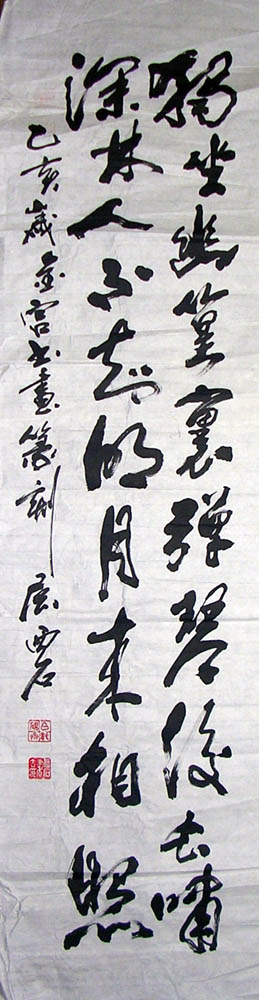 獨坐幽篁裏彈琴復長嘯
深林人不知明月來相照
乙亥歲宮書畫篆刻